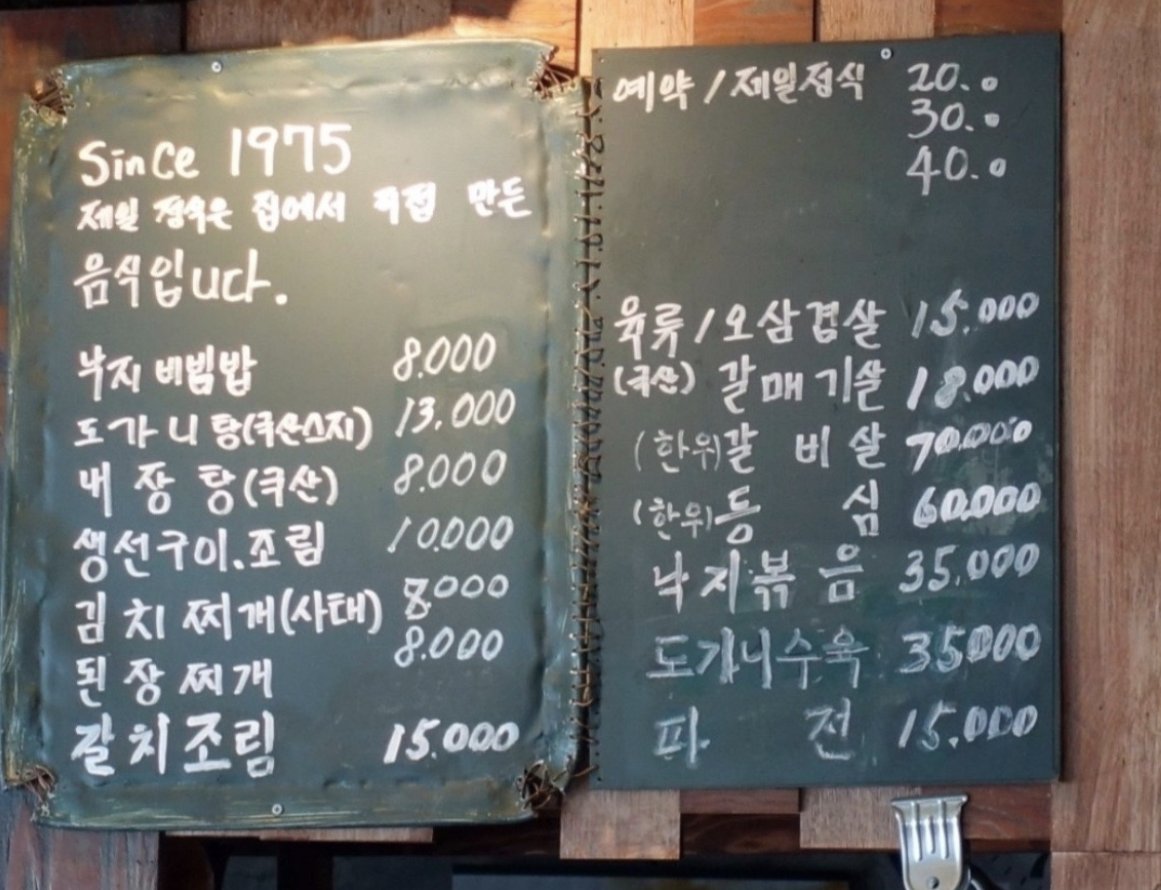 Since 1975
제일 정식은 집에서 직접 만든
음식입니다.
낙지 비빔밥 8.000
도가니탕(쿠산스지) 13.000
내장탕(쿠산) 8.000
생선구이.조림 10.000
김치찌개(사태) 8.000
된장찌개 8.000
갈치조림 15.000
예약/제일정식 20.0
30.0
40.0
육류/오삼겹살 15.000
(쿠산) 갈매기살 18.000
(한우)갈비살 70.000
(한우)등심 60.000
낙지볶음 35.000
도가니수육 35000
파전 15.000